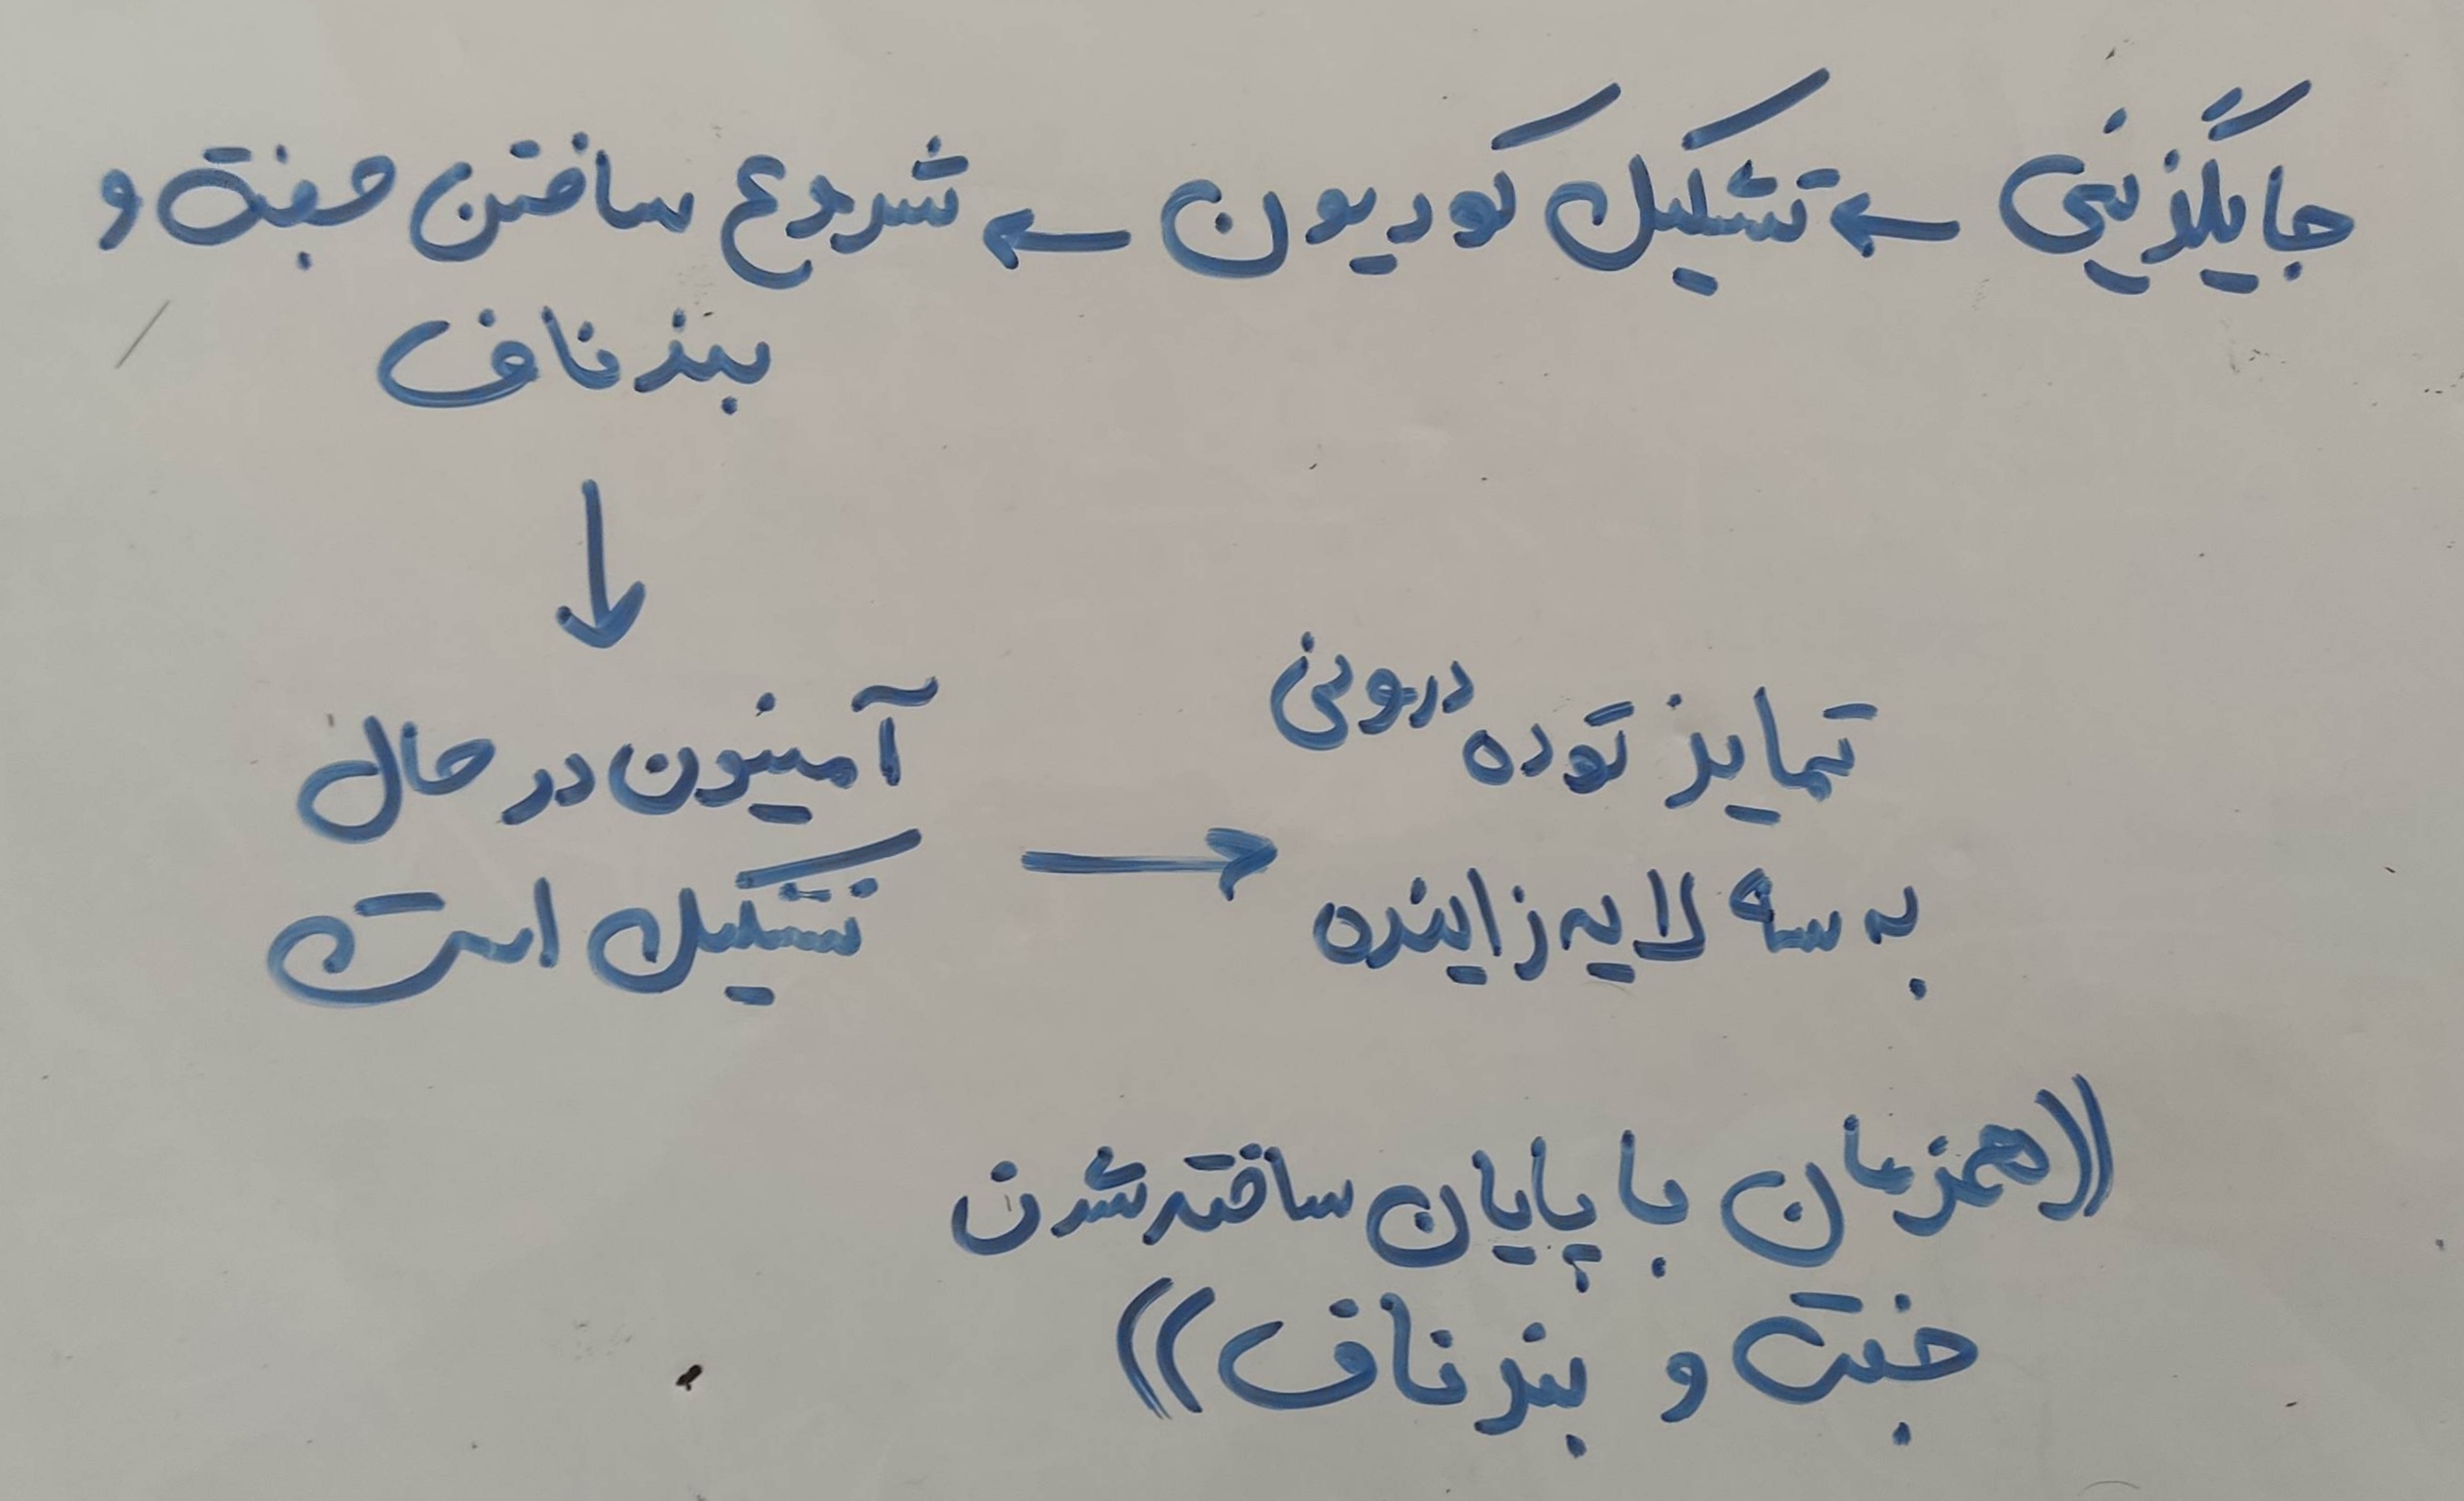 جایگزینی ← تشکیل کوریون ← شروع ساختن جفت و
بند ناف
↓
آمنیون در حال
تشکیل است
→
تمایز توده درونی
به سه لایه زاینده
((همزمان با پایان ساخته شدن
جفت و بند ناف))